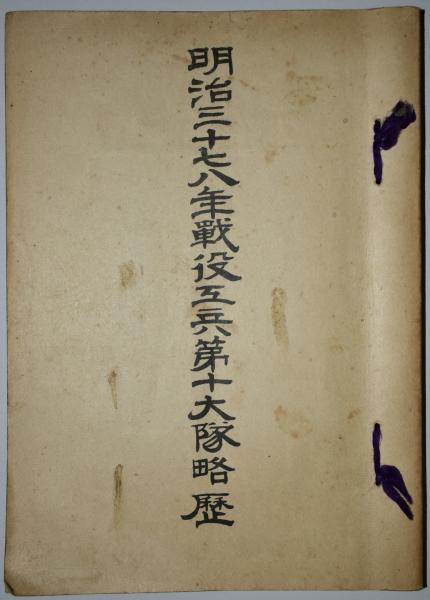 明治三十七八年戰役工兵第十大隊略歷